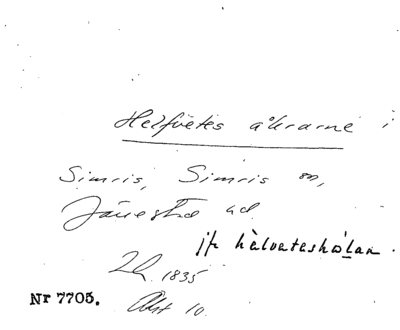 Helfvetes åkrarne i
Simris, Simris sn,
Järrestad hd
jfr hälveteshålan.
1835
Akt 10.
Nr 7705.